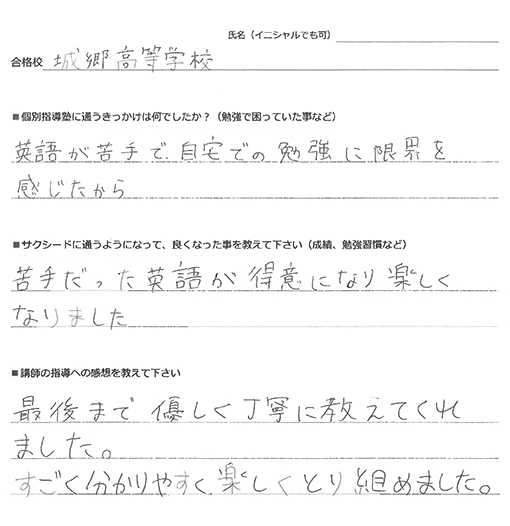 氏名（イニシャルでも可）
合格校 城郷高等学校
■個別指導塾に通うきっかけは何でしたか？（勉強で困っていた事など）
英語が苦手で、自宅での勉強に限界を
感じたから
■サクシードに通うようになって、良くなった事を教えて下さい（成績、勉強習慣など）
苦手だった英語が得意になり楽しく
なりました
■講師の指導への感想を教えて下さい
最後まで優しく丁寧に教えてくれ
ました。
すごく分かりやすく、楽しくとり組めました。